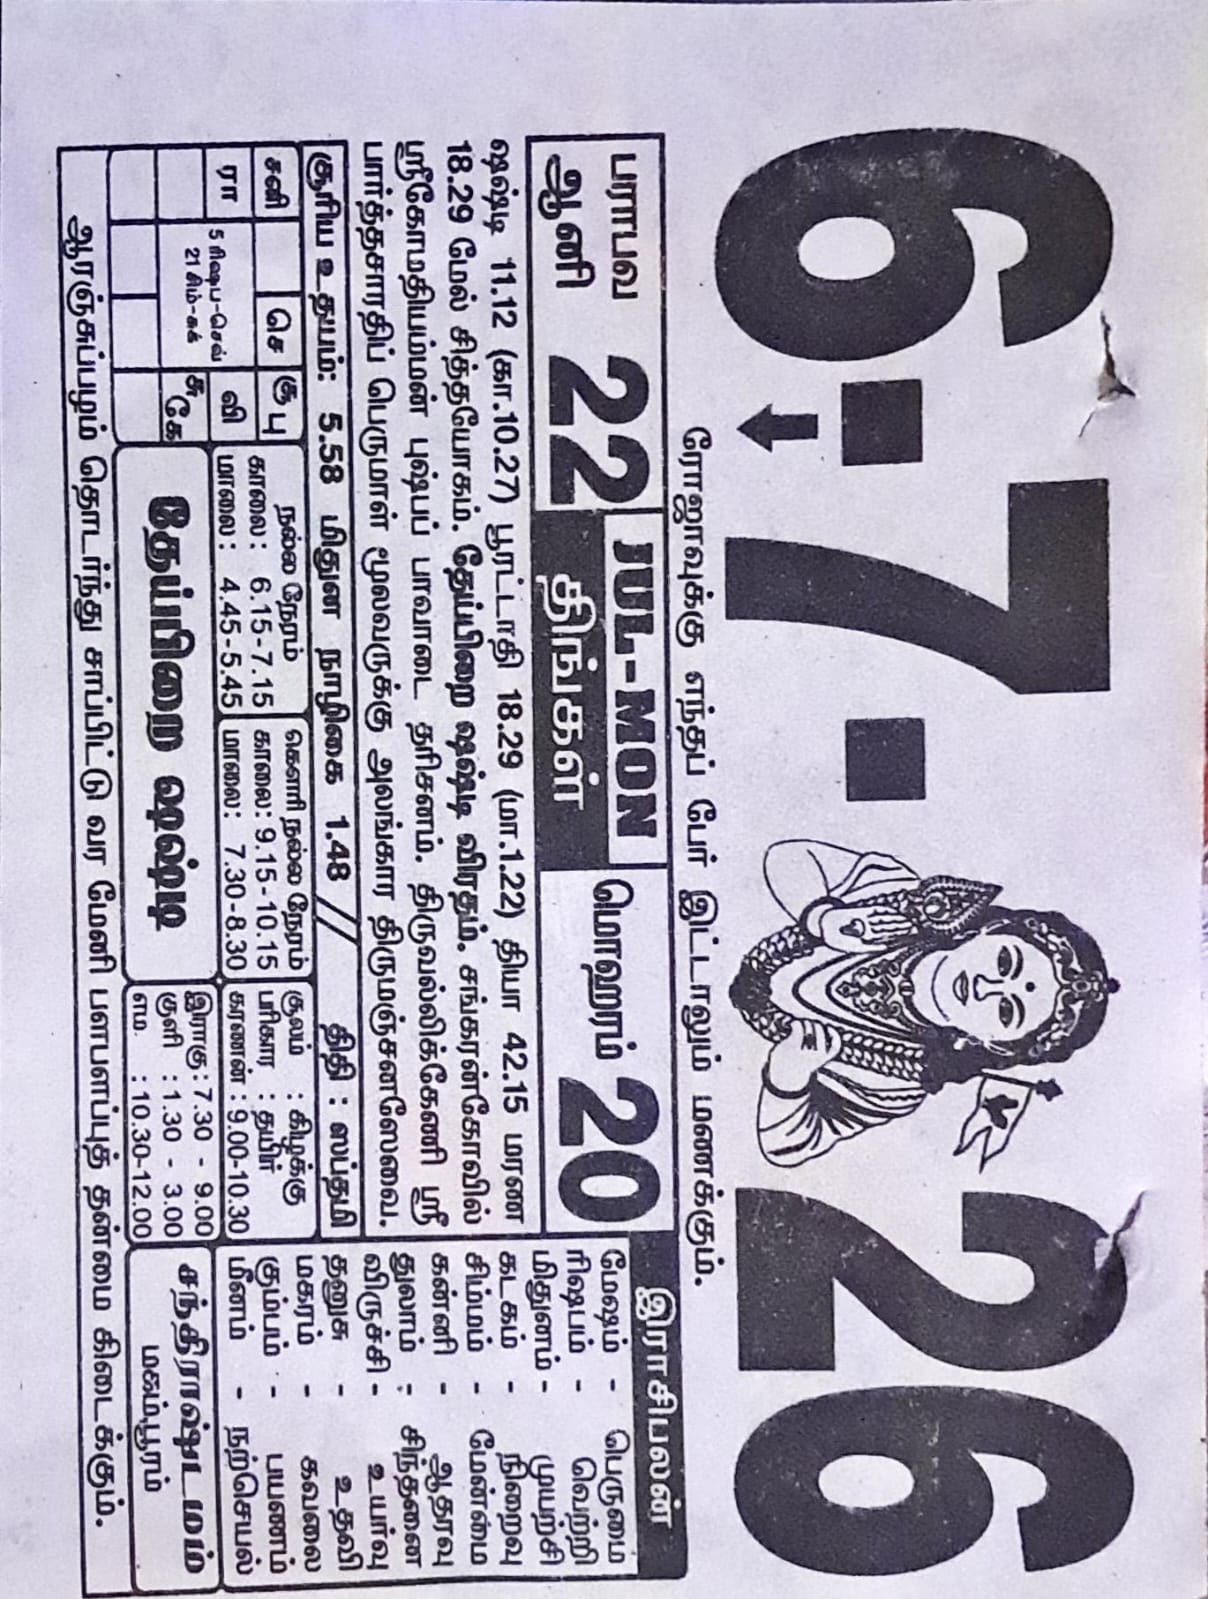 6.7.26
ரோஜாவுக்கு எந்தப் பேர் இட்டாலும் மணக்கும்.
பராபவ
ஆனி 22
JUL-MON
திங்கள்
மொஹரம் 20
ஷஷ்டி 11.12 (கா.10.27) பூரட்டாதி 18.29 (மா.1.22) தியா 42.15 மரண
18.29 மேல் சித்தயோகம். தேய்பிறை ஷஷ்டி விரதம். சங்கரன்கோவில்
ஸ்ரீகோமதியம்மன் புஷ்பப் பாவாடை தரிசனம். திருவல்லிக்கேணி ஸ்ரீ
பார்த்தசாரதிப் பெருமாள் மூலவருக்கு அலங்கார திருமஞ்சனஸேவை.
சூரிய உதயம்: 5.58 மிதுன நாழிகை 1.48 // திதி : ஸப்தமி
சனி
செ
குபு
ரா
5 ரிஷப-செவ்
21 சிம்-சுக்
வி
சுகே
நல்ல நேரம்
காலை: 6.15-7.15
மாலை: 4.45-5.45
கௌரி நல்ல நேரம்
காலை: 9.15-10.15
மாலை: 7.30-8.30
சூலம் : கிழக்கு
பரிகார : தயிர்
கரணன் : 9.00-10.30
தேய்பிறை ஷஷ்டி
இராகு: 7.30 - 9.00
குளி : 1.30 - 3.00
எம. : 10.30-12.00
இராசிபலன்
மேஷம் - பெருமை
ரிஷபம் - வெற்றி
மிதுனம் - முயற்சி
கடகம் - நிறைவு
சிம்மம் - மேன்மை
கன்னி - ஆதரவு
துலாம் - சிந்தனை
விருச்சி - உயர்வு
தனுசு - உதவி
மகரம் - கவலை
கும்பம் - பயணம்
மீனம் - நற்செயல்
சந்திராஷ்டமம்
மகம்,பூரம்
ஆரஞ்சுப்பழம் தொடர்ந்து சாப்பிட்டு வர மேனி பளபளப்புத் தன்மை கிடைக்கும்.